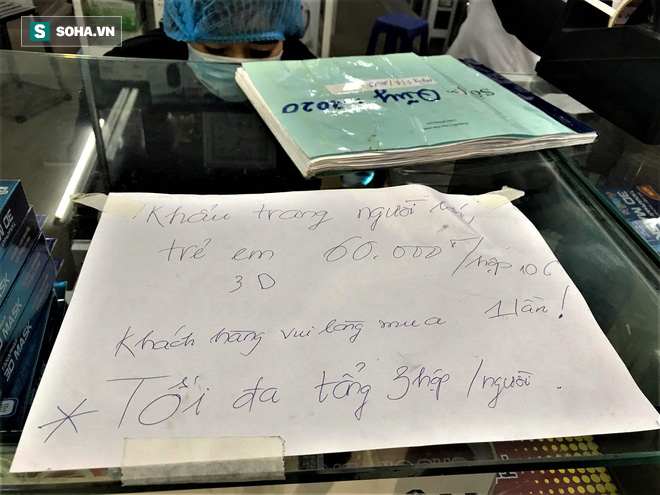 SOHA.VN
Sổ
Quỹ 2020
Khẩu trang người lớn,
trẻ em 60.000đ/hộp 10C
3D
Khách hàng vui lòng mua 1 lần!
* Tối đa tổng 3 hộp/người.
3D MASK